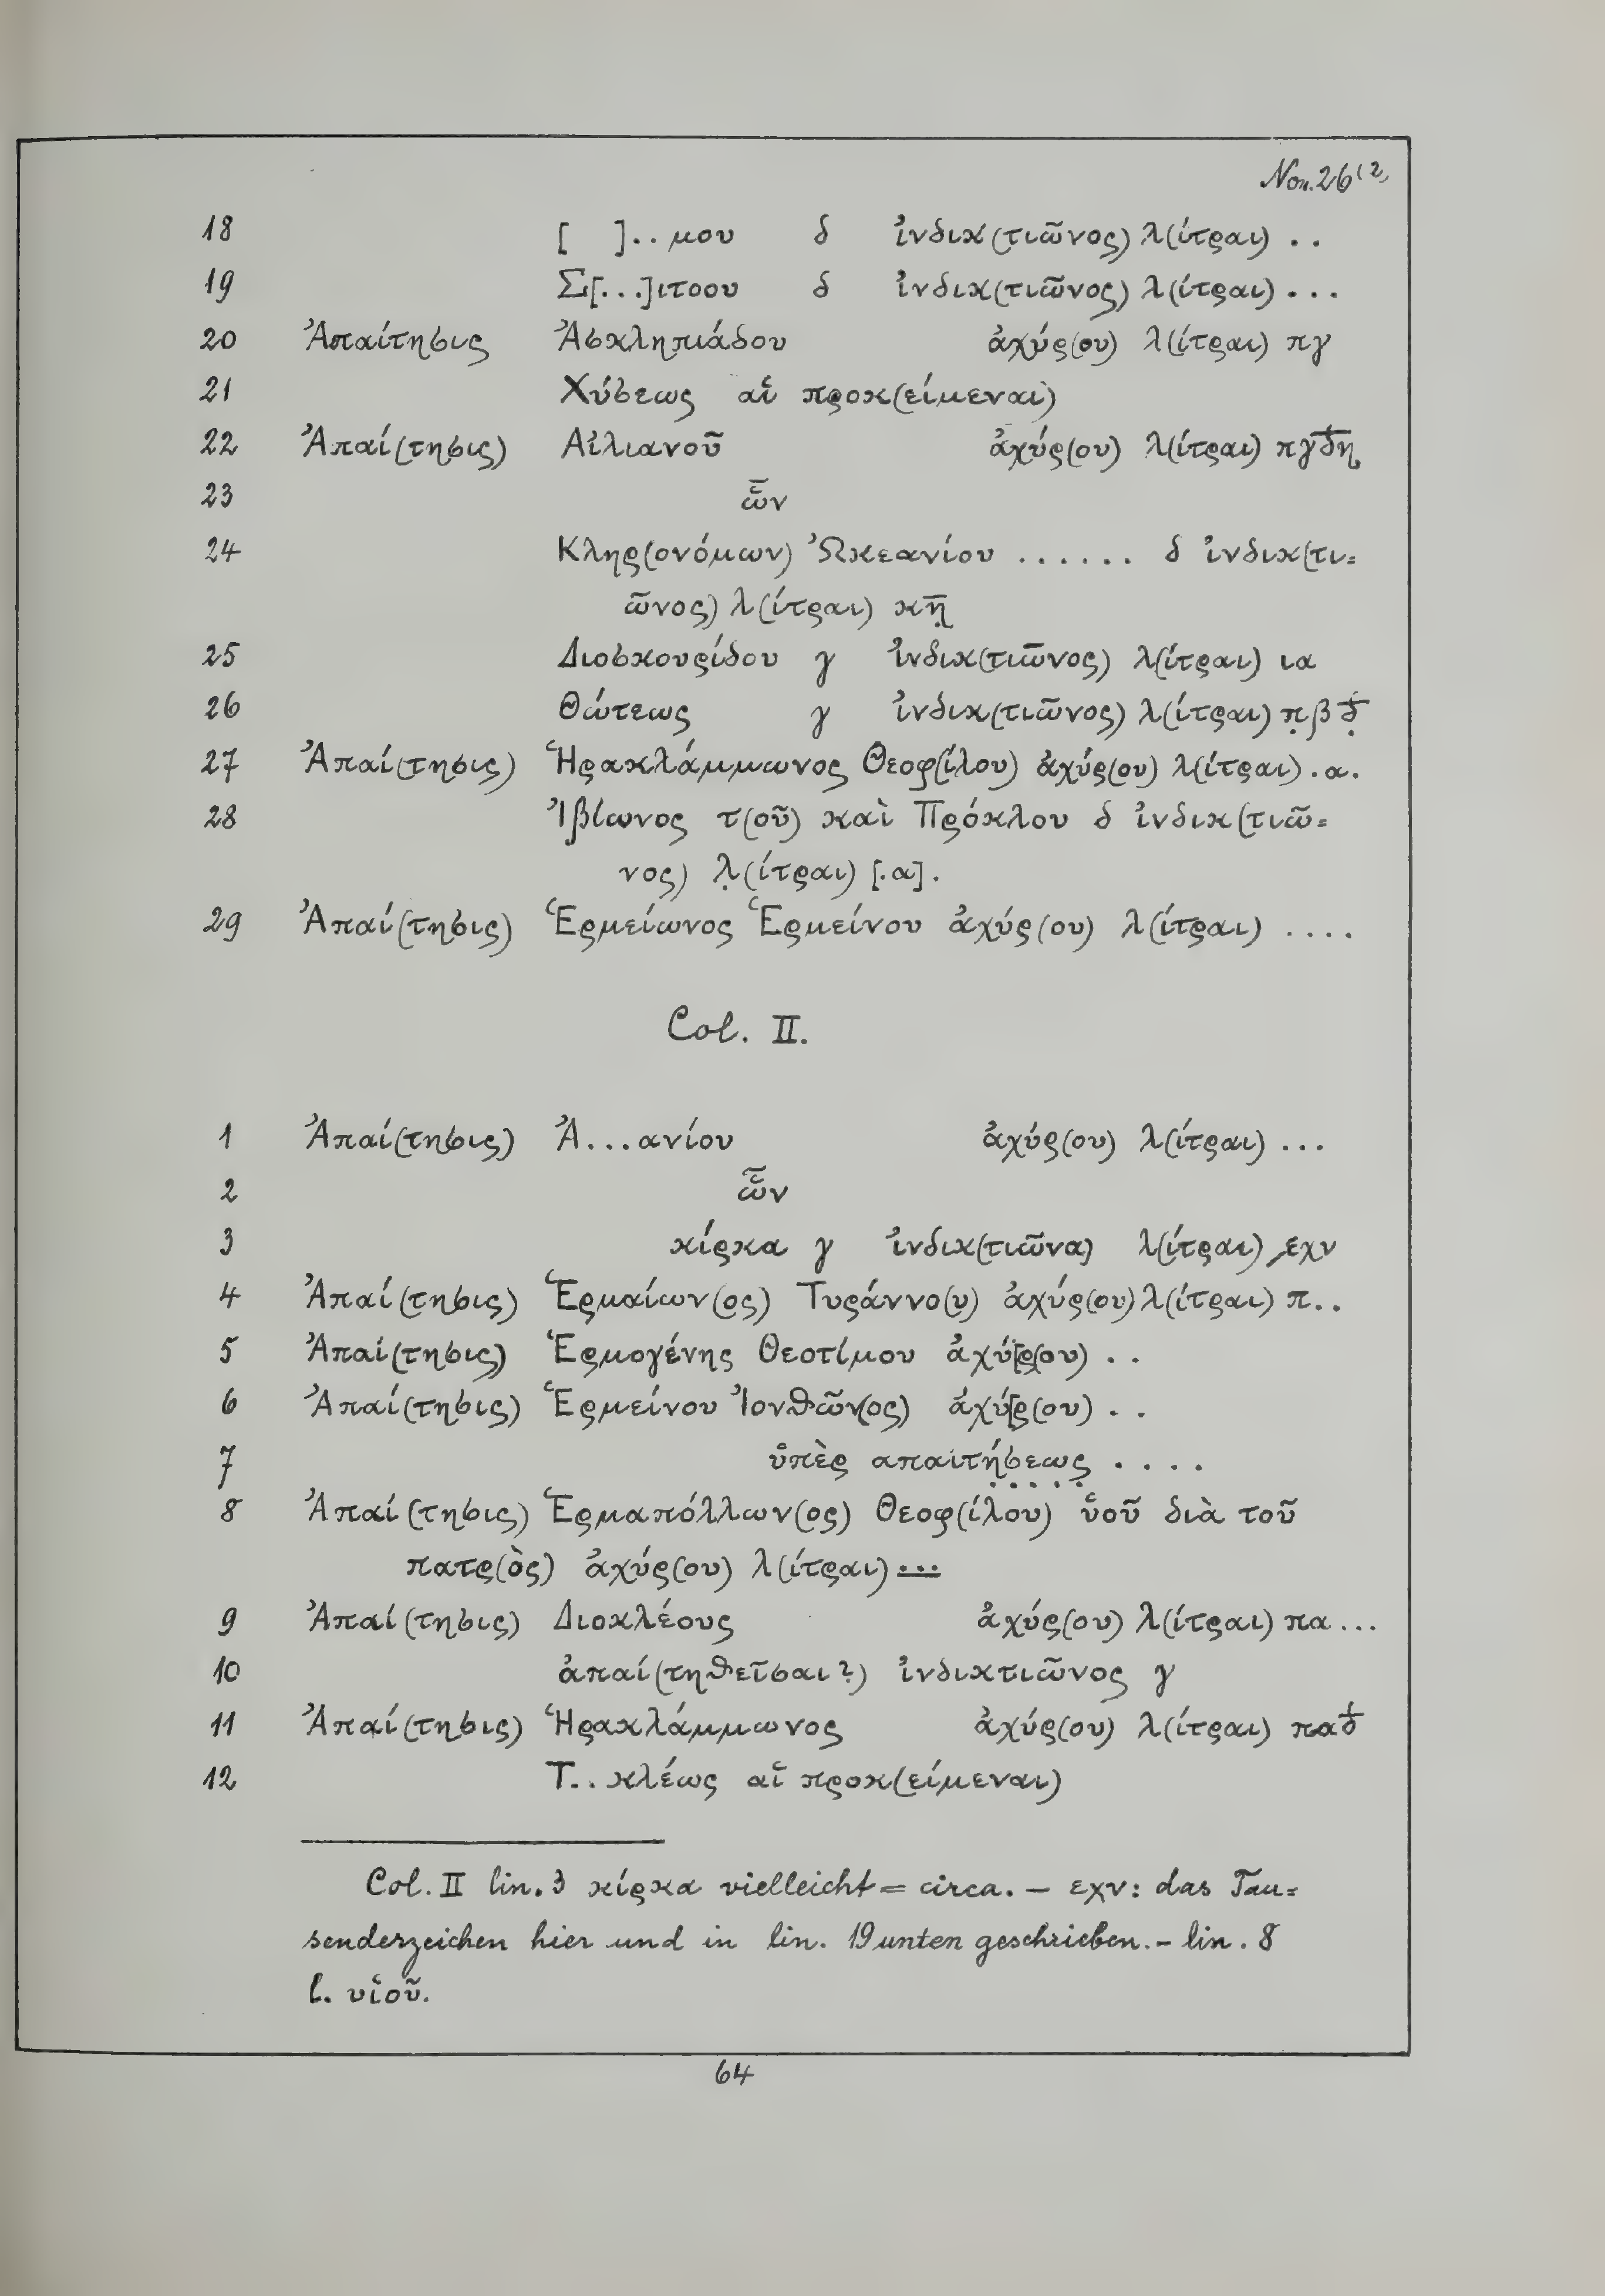 Nom. 26 (2)
18 [ ]..μου δ ἰνδικ(τιῶνος) λ(ίτραι) ..
19 Σ[...]ιτοου δ ἰνδικ(τιῶνος) λ(ίτραι) ...
20 Ἀπαίτησις Ἀσκληπιάδου ἀχύρ(ου) λ(ίτραι) πγ
21 Χύσεως αἱ προκ(είμεναι)
22 Ἀπαί(τησις) Αἰλιανοῦ ἀχύρ(ου) λ(ίτραι) πγδη
23 ὧν
24 Κληρ(ονόμων) Ὠκεανίου ...... δ ἰνδικ(τι=
ῶνος) λ(ίτραι) κη̣
25 Διοσκουρίδου γ ἰνδικ(τιῶνος) λ(ίτραι) ια
26 Θώτεως γ ἰνδικ(τιῶνος) λ(ίτραι) π̣βδ̣
27 Ἀπαί(τησις) Ἡρακλάμμωνος Θεοφ(ίλου) ἀχύρ(ου) λ(ίτραι) .α.
28 Ἰβίωνος τ(οῦ) καὶ Πρόκλου δ ἰνδικ(τιῶ=
νος) λ̣(ίτραι) [.α].
29 Ἀπαί(τησις) Ἑρμείωνος Ἑρμείνου ἀχύρ(ου) λ(ίτραι) ....
Col. II.
1 Ἀπαί(τησις) Ἀ...ανίου ἀχύρ(ου) λ(ίτραι) ...
2 ὧν
3 κίρκα γ ἰνδικ(τιῶνα) λ(ίτραι) ͵εχν
4 Ἀπαί(τησις) Ἑρμαίων(ος) Τυράννο(υ) ἀχύρ(ου) λ(ίτραι) π..
5 Ἀπαί(τησις) Ἑρμογένης Θεοτίμου ἀχύ[ρ(ου) ..
6 Ἀπαί(τησις) Ἑρμείνου Ἰονθῶν(ος) ἀχύ[ρ(ου) ..
7 ὑπὲρ απαιτή̣σ̣ε̣ω̣ς̣ ....
8 Ἀπαί(τησις) Ἑρμαπόλλων(ος) Θεοφ(ίλου) ὑοῦ διὰ τοῦ
πατρ(ὸς) ἀχύρ(ου) λ(ίτραι) ...
9 Ἀπαί(τησις) Διοκλέους ἀχύρ(ου) λ(ίτραι) πα...
10 ἀπαί(τηθεῖσαι?) ἰνδικτιῶνος γ
11 Ἀπαί(τησις) Ἡρακλάμμωνος ἀχύρ(ου) λ(ίτραι) παδ
12 Τ..κλέως αἱ προκ(είμεναι)
Col. II lin. 3 κίρκα vielleicht = circa. – εχν: das Tau=
senderzeichen hier und in lin. 19 unten geschrieben. – lin. 8
l. υἱοῦ.
64